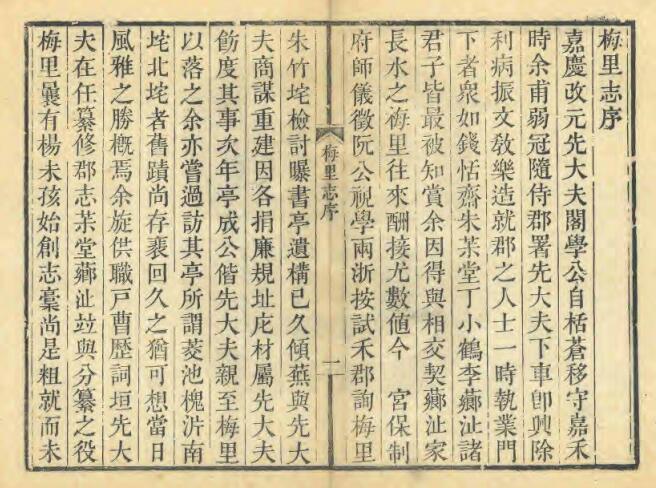 梅里志序
嘉慶改元先大夫閣學公自栝蒼移守嘉禾
時余甫弱冠隨侍郡署先大夫下車卽興除
利病振文敎樂造就郡之人士一時執業門
下者衆如錢恬齋朱茮堂丁小鶴李薌沚諸
君子皆最被知賞余因得與相交契薌沚家
長水之梅里往來酬接尤數値今　宮保制
府師儀徵阮公視學兩浙按試禾郡詢梅里
梅里志序
一
朱竹垞檢討曝書亭遺構已久傾蕪與先大
夫商謀重建因各捐廉規址庀材屬先大夫
飭度其事次年亭成公偕先大夫親至梅里
以落之余亦嘗過訪其亭所謂菱池槐沜南
垞北垞者舊蹟尚存裵回久之猶可想當日
風雅之勝槪焉余旋供職戸曹歴詞垣先大
夫在任纂修郡志茮堂薌沚竝與分纂之役
梅里曩有楊未孩始創志稾尚是粗就而未